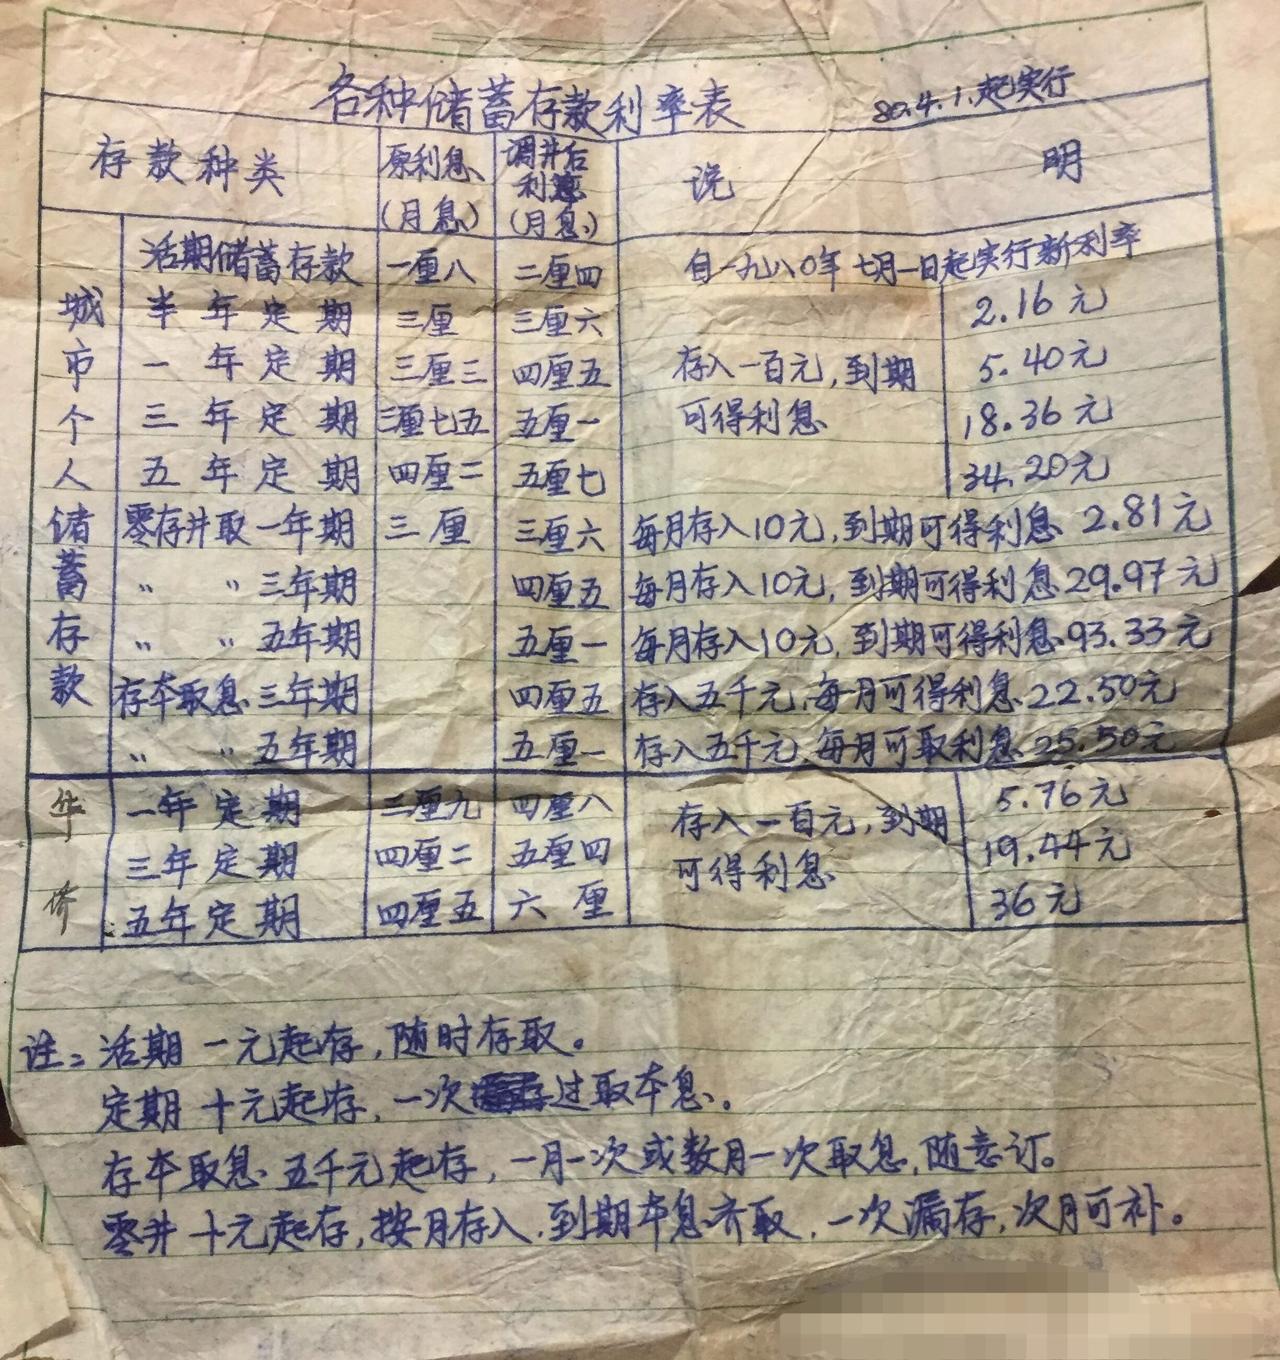 各种储蓄存款利率表 80.4.1.起实行
存款种类 原利息(月息) 调井后利息(月息) 说明
城市个人储蓄存款
活期储蓄存款 一厘八 二厘四 自一九八〇年七月一日起实行新利率
半年定期 三厘 三厘六 2.16元
一年定期 三厘三 四厘五 存入一百元,到期 5.40元
三年定期 三厘七五 五厘一 可得利息 18.36元
五年定期 四厘二 五厘七 34.20元
零存井取一年期 三厘 三厘六 每月存入10元,到期可得利息2.81元
〃 〃 三年期 四厘五 每月存入10元,到期可得利息29.97元
〃 〃 五年期 五厘一 每月存入10元,到期可得利息93.33元
存本取息三年期 四厘五 存入五千元,每月可得利息22.50元
〃 〃 五年期 五厘一 存入五千元,每月可取利息25.50元
华侨
一年定期 三厘九 四厘八 存入一百元,到期 5.76元
三年定期 四厘二 五厘四 可得利息 19.44元
五年定期 四厘五 六厘 36元
注:活期一元起存,随时存取。
定期十元起存,一次过取本息。
存本取息五千元起存,一月一次或数月一次取息,随意订。
零井十元起存,按月存入,到期本息齐取,一次漏存,次月可补。